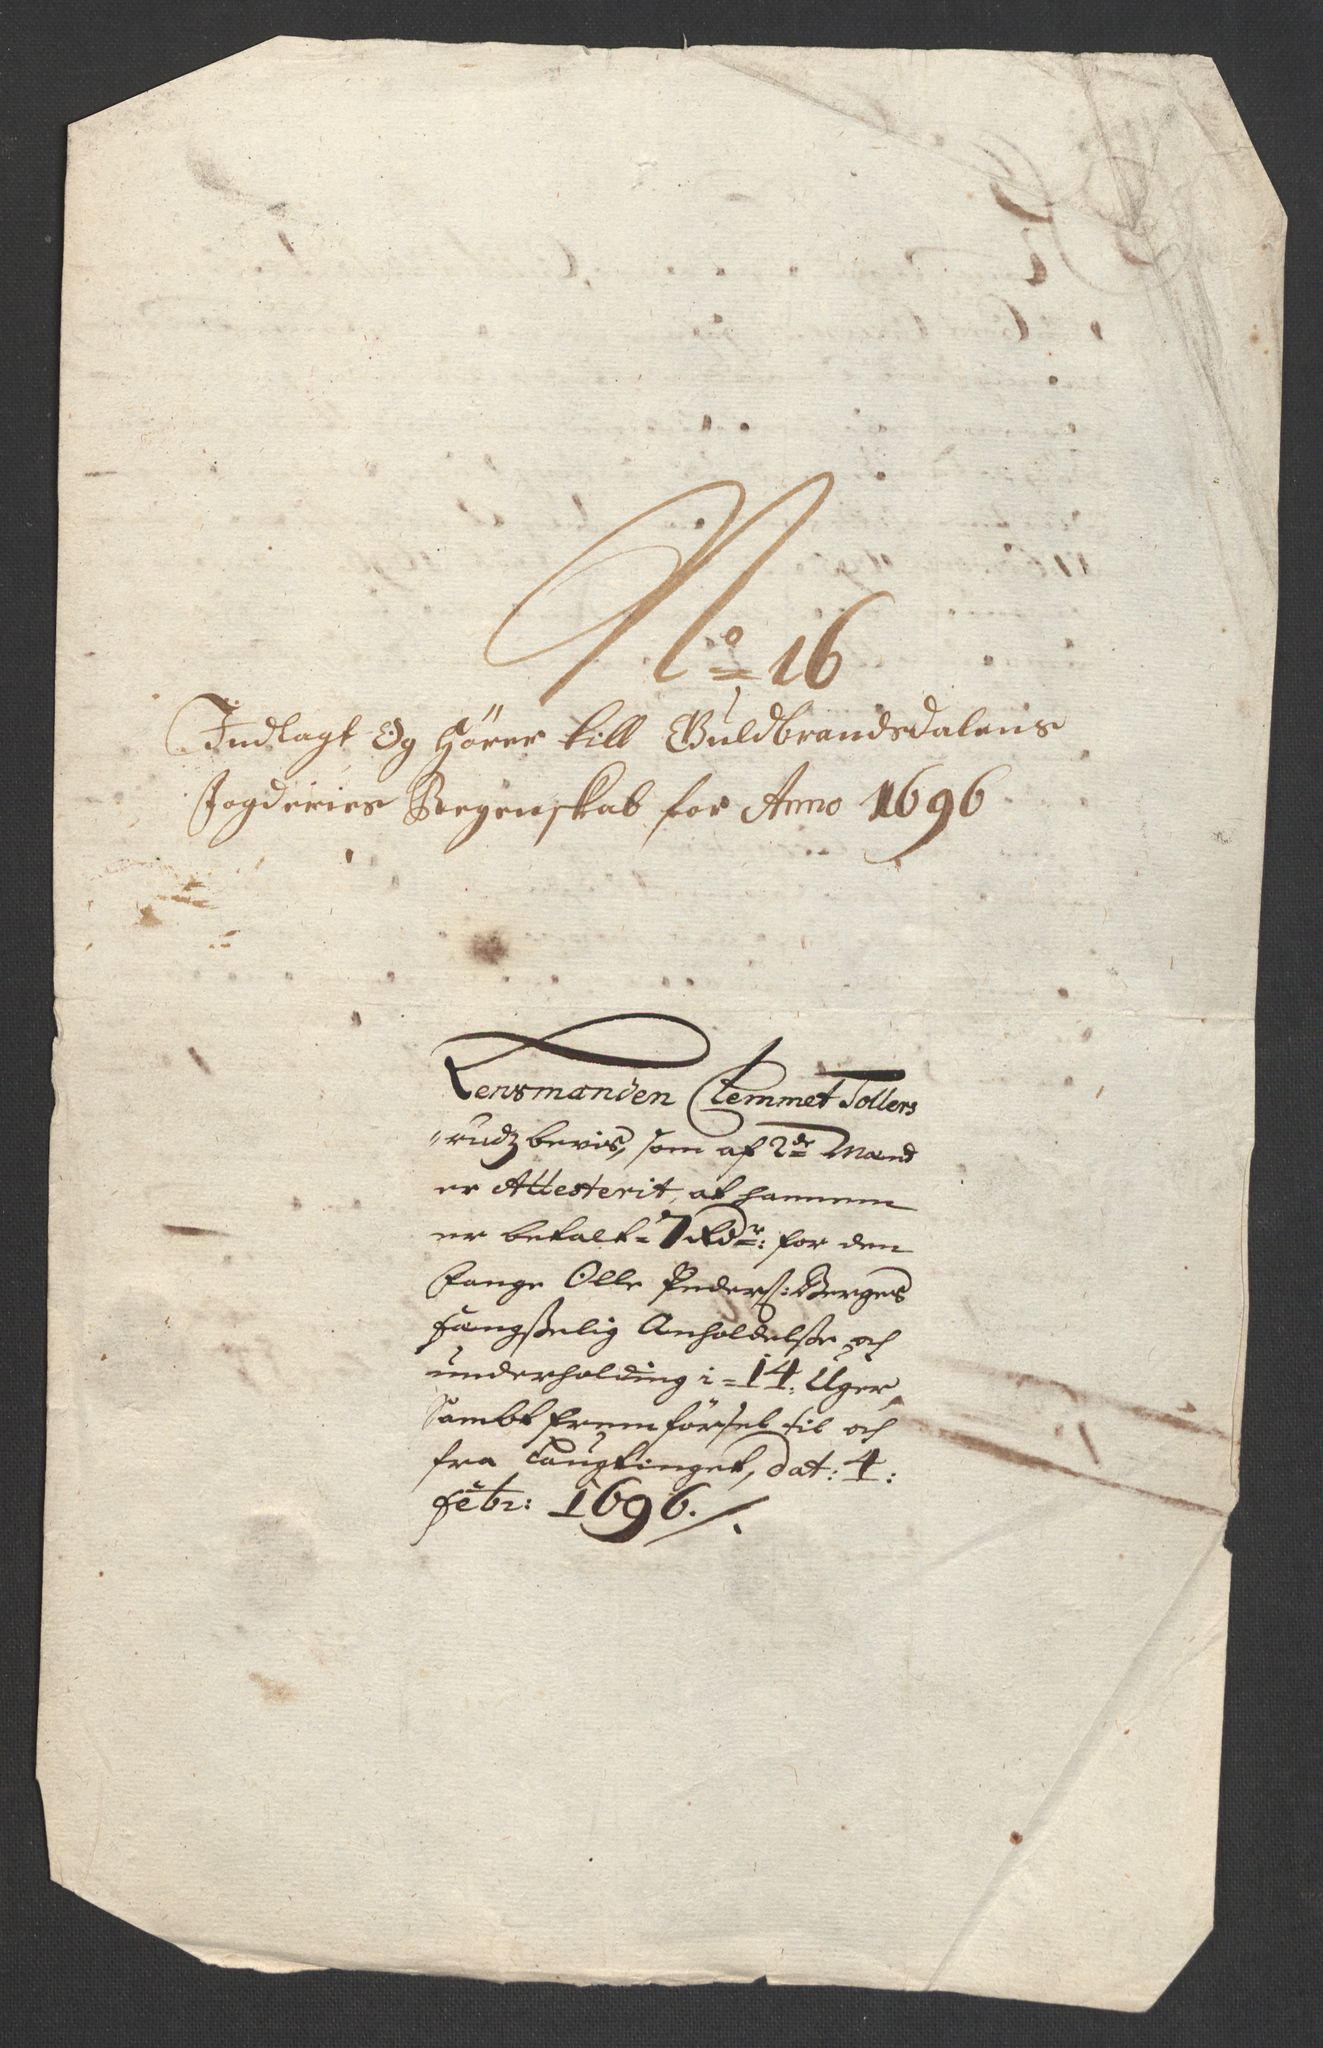 No 16
Indlagt Og Hörer till Guldbrandsdalens
Fogderies Regenskab for Anno 1696
Lensmanden Clemmet Tollers
rudz bevis, som af 2de Mænd
er Attesterit, at hannem
er betalt 7 Rdr: for den
fange Olle Peders: Berges
fængßelig Anholdelße och
underholding i 14. Uger,
Sambt fremförsel til och
fra Laugtinget, dat: 4:
Febr: 1696.